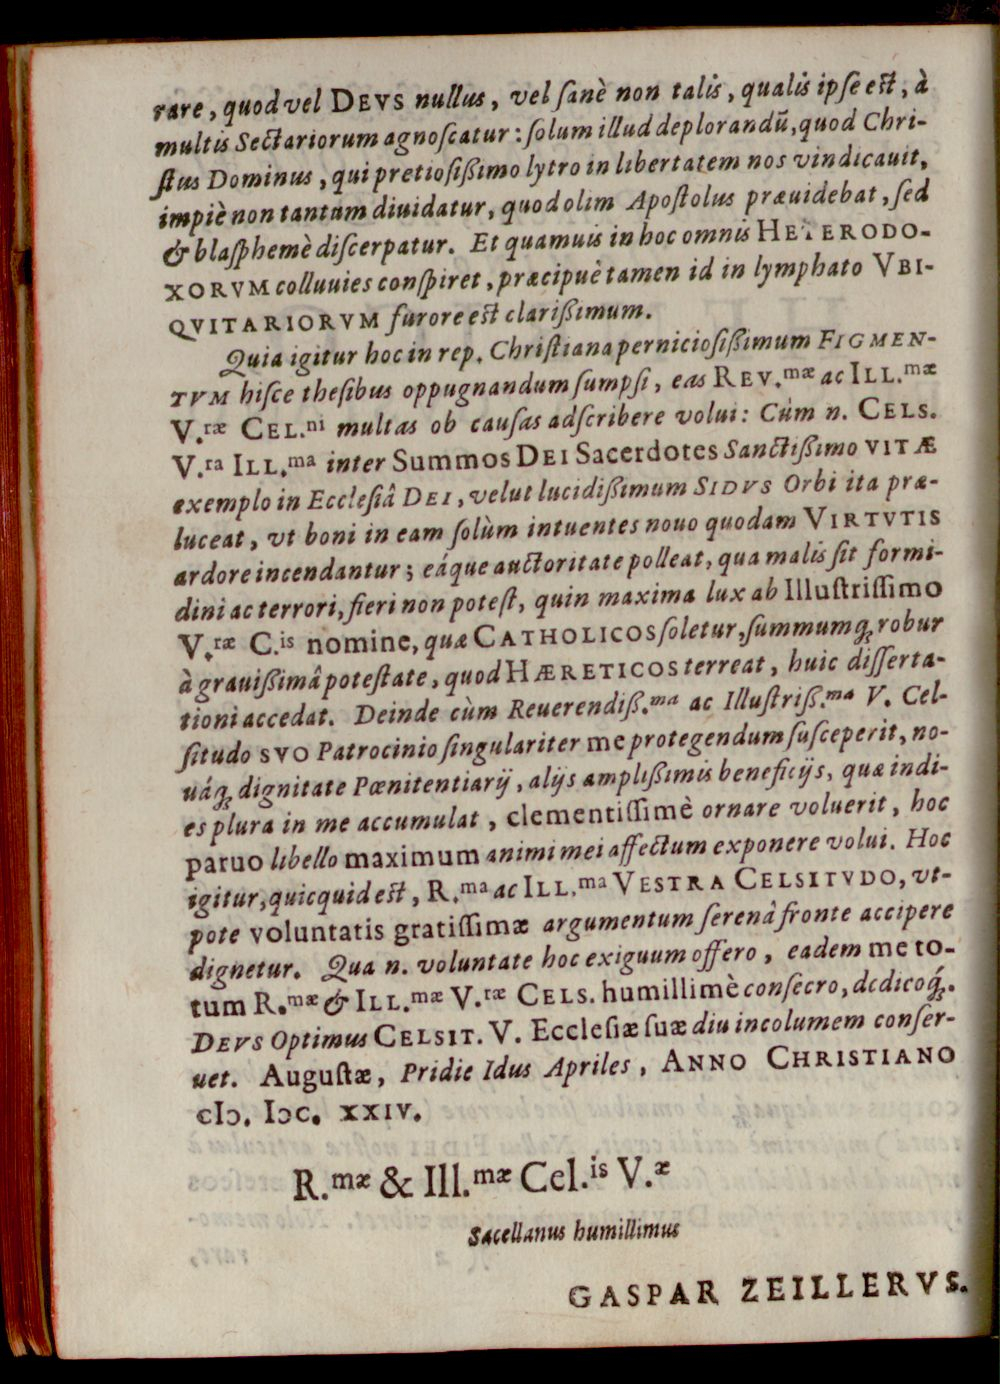 rare, quod vel DEVS nullus, vel ſanè non talis, qualis ipſe eſt, à
multis Sectariorum agnoſcatur: ſolum illud deplorandũ, quod Chri-
ſtus Dominus, qui pretioſißimo lytro in libertatem nos vindicauit,
impiè non tantum diuidatur, quod olim Apoſtolus præuidebat, ſed
& blaſphemè diſcerpatur. Et quamuis in hoc omnis HETERODO-
XORVM colluuies conſpiret, præcipuè tamen id in lymphato VBI-
QVITARIORVM furore eſt clarißimum.
Quia igitur hoc in rep. Chriſtiana pernicioſißimum FIGMEN-
TVM hiſce theſibus oppugnandum ſumpſi, eas REV.mæ ac ILL.mæ
V.ræ CEL.ni multas ob cauſas adſcribere volui: Cùm n. CELS.
V.ra ILL.ma inter Summos DEI Sacerdotes Sanctißimo VITÆ
exemplo in Eccleſiâ DEI, velut lucidißimum SIDVS Orbi ita præ-
luceat, vt boni in eam ſolùm intuentes nouo quodam VIRTVTIS
ardore incendantur; eáque auctoritate polleat, qua malis ſit formi-
dini ac terrori, fieri non poteſt, quin maxima lux ab Illuſtriſſimo
V.ræ C.is nomine, quæ CATHOLICOS ſoletur, ſummumq́ꝫ robur
à grauißimâ poteſtate, quod HÆRETICOS terreat, huic diſſerta-
tioni accedat. Deinde cùm Reuerendiß.ma ac Illuſtriß.ma V. Cel-
ſitudo SVO Patrocinio ſingulariter me protegendum ſuſceperit, no-
uáqꝫ dignitate Pœnitentiarij, alijs amplißimis beneficijs, quæ indi-
es plura in me accumulat, clementiſſimè ornare voluerit, hoc
paruo libello maximum animi mei affectum exponere volui. Hoc
igitur, quicquid eſt, R.ma ac ILL.ma VESTRA CELSITVDO, vt-
pote voluntatis gratiſſimæ argumentum ſerenâ fronte accipere
dignetur. Qua n. voluntate hoc exiguum offero, eadem me to-
tum R.mæ & ILL.mæ V.ræ CELS. humillimè conſecro, dedicoq́ꝫ.
DEVS Optimus CELSIT. V. Eccleſiæ ſuæ diu incolumem conſer-
uet. Auguſtæ, Pridie Idus Apriles, ANNO CHRISTIANO
cIↄ. Iↄc. XXIV.
R.mæ & Ill.mæ Cel.is V.æ
Sacellanus humillimus
GASPAR ZEILLERVS.